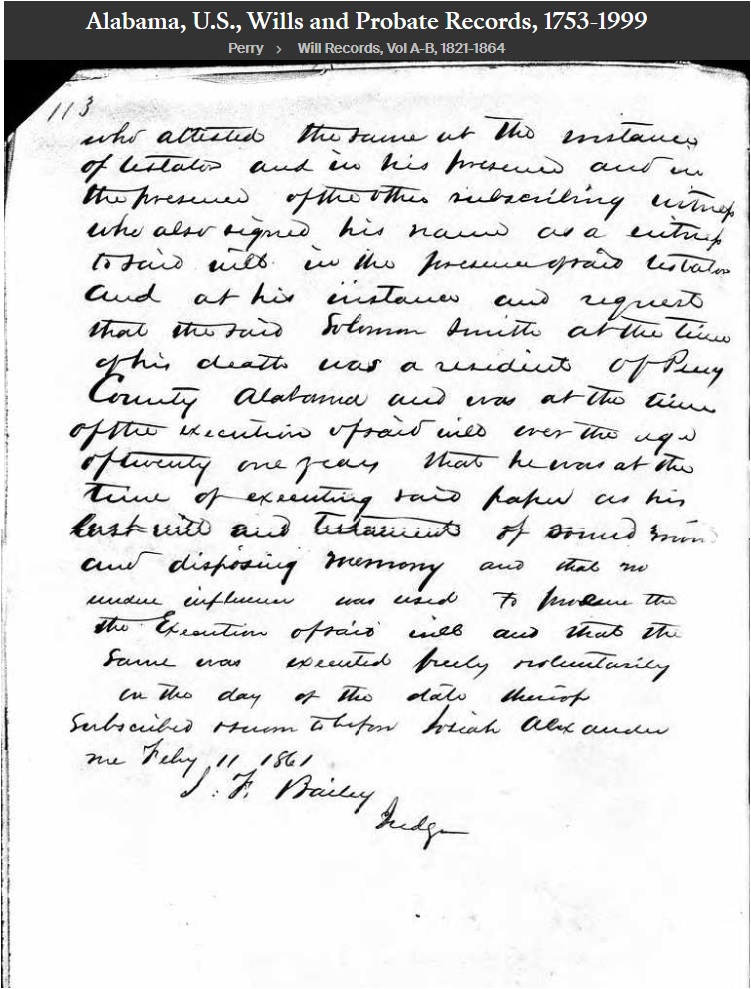 Alabama, U.S., Wills and Probate Records, 1753-1999
Perry > Will Records, Vol A-B, 1821-1864
113
who attested the same at the instance
of testator and in his presence and in
the presence of the other subscribing witness
who also signed his name as a witness
to said will in the presence of said testator
and at his instance and request
that the said Solomon Smith at the time
of his death was a resident of Perry
County Alabama and was at the time
of the execution of said will over the age
of twenty one years that he was at the
time of executing said paper as his
last will and testament of sound mind
and disposing memory and that no
undue influence was used to procure the
the Execution of said will and that the
Same was executed freely voluntarily
on the day of the date thereof
Subscribed & sworn to before Josiah Alexander
me Feby 11 1861
J. F. Bailey
Judge